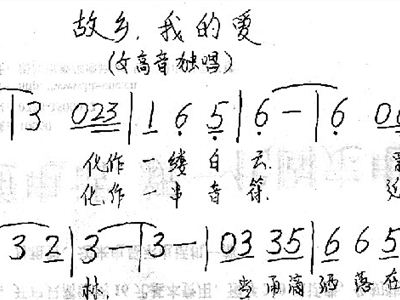 故乡,我的爱
(女高音独唱)
3 023 | 1 6 5 | 6 - | 6
化作一缕白云.
化作一串音符.
3 2 | 3 - | 3 - | 03 35 | 6 6 5
林, 当雨滴洒落在